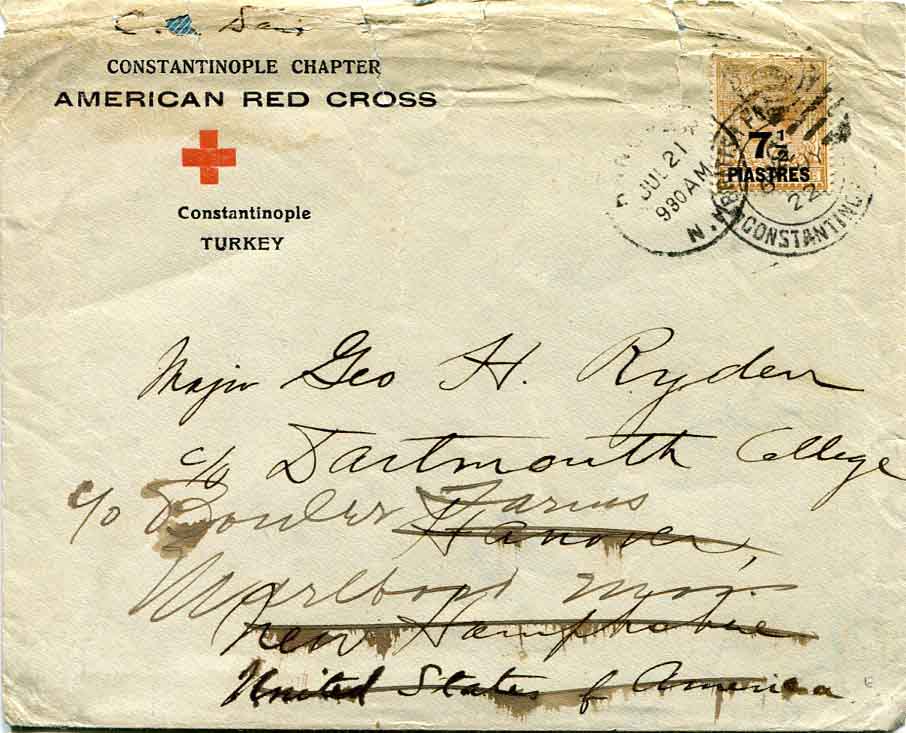 CONSTANTINOPLE CHAPTER
AMERICAN RED CROSS
Constantinople
TURKEY
JUL 21
930 AM
N.H.
7 1/2
PIASTRES
BRITISH
22
CONSTANTINO
Major Geo H. Ryden
c/o Dartmouth College
c/o Farms
Hanover,
Marlboro Mass.
New Hampshire
United States of America